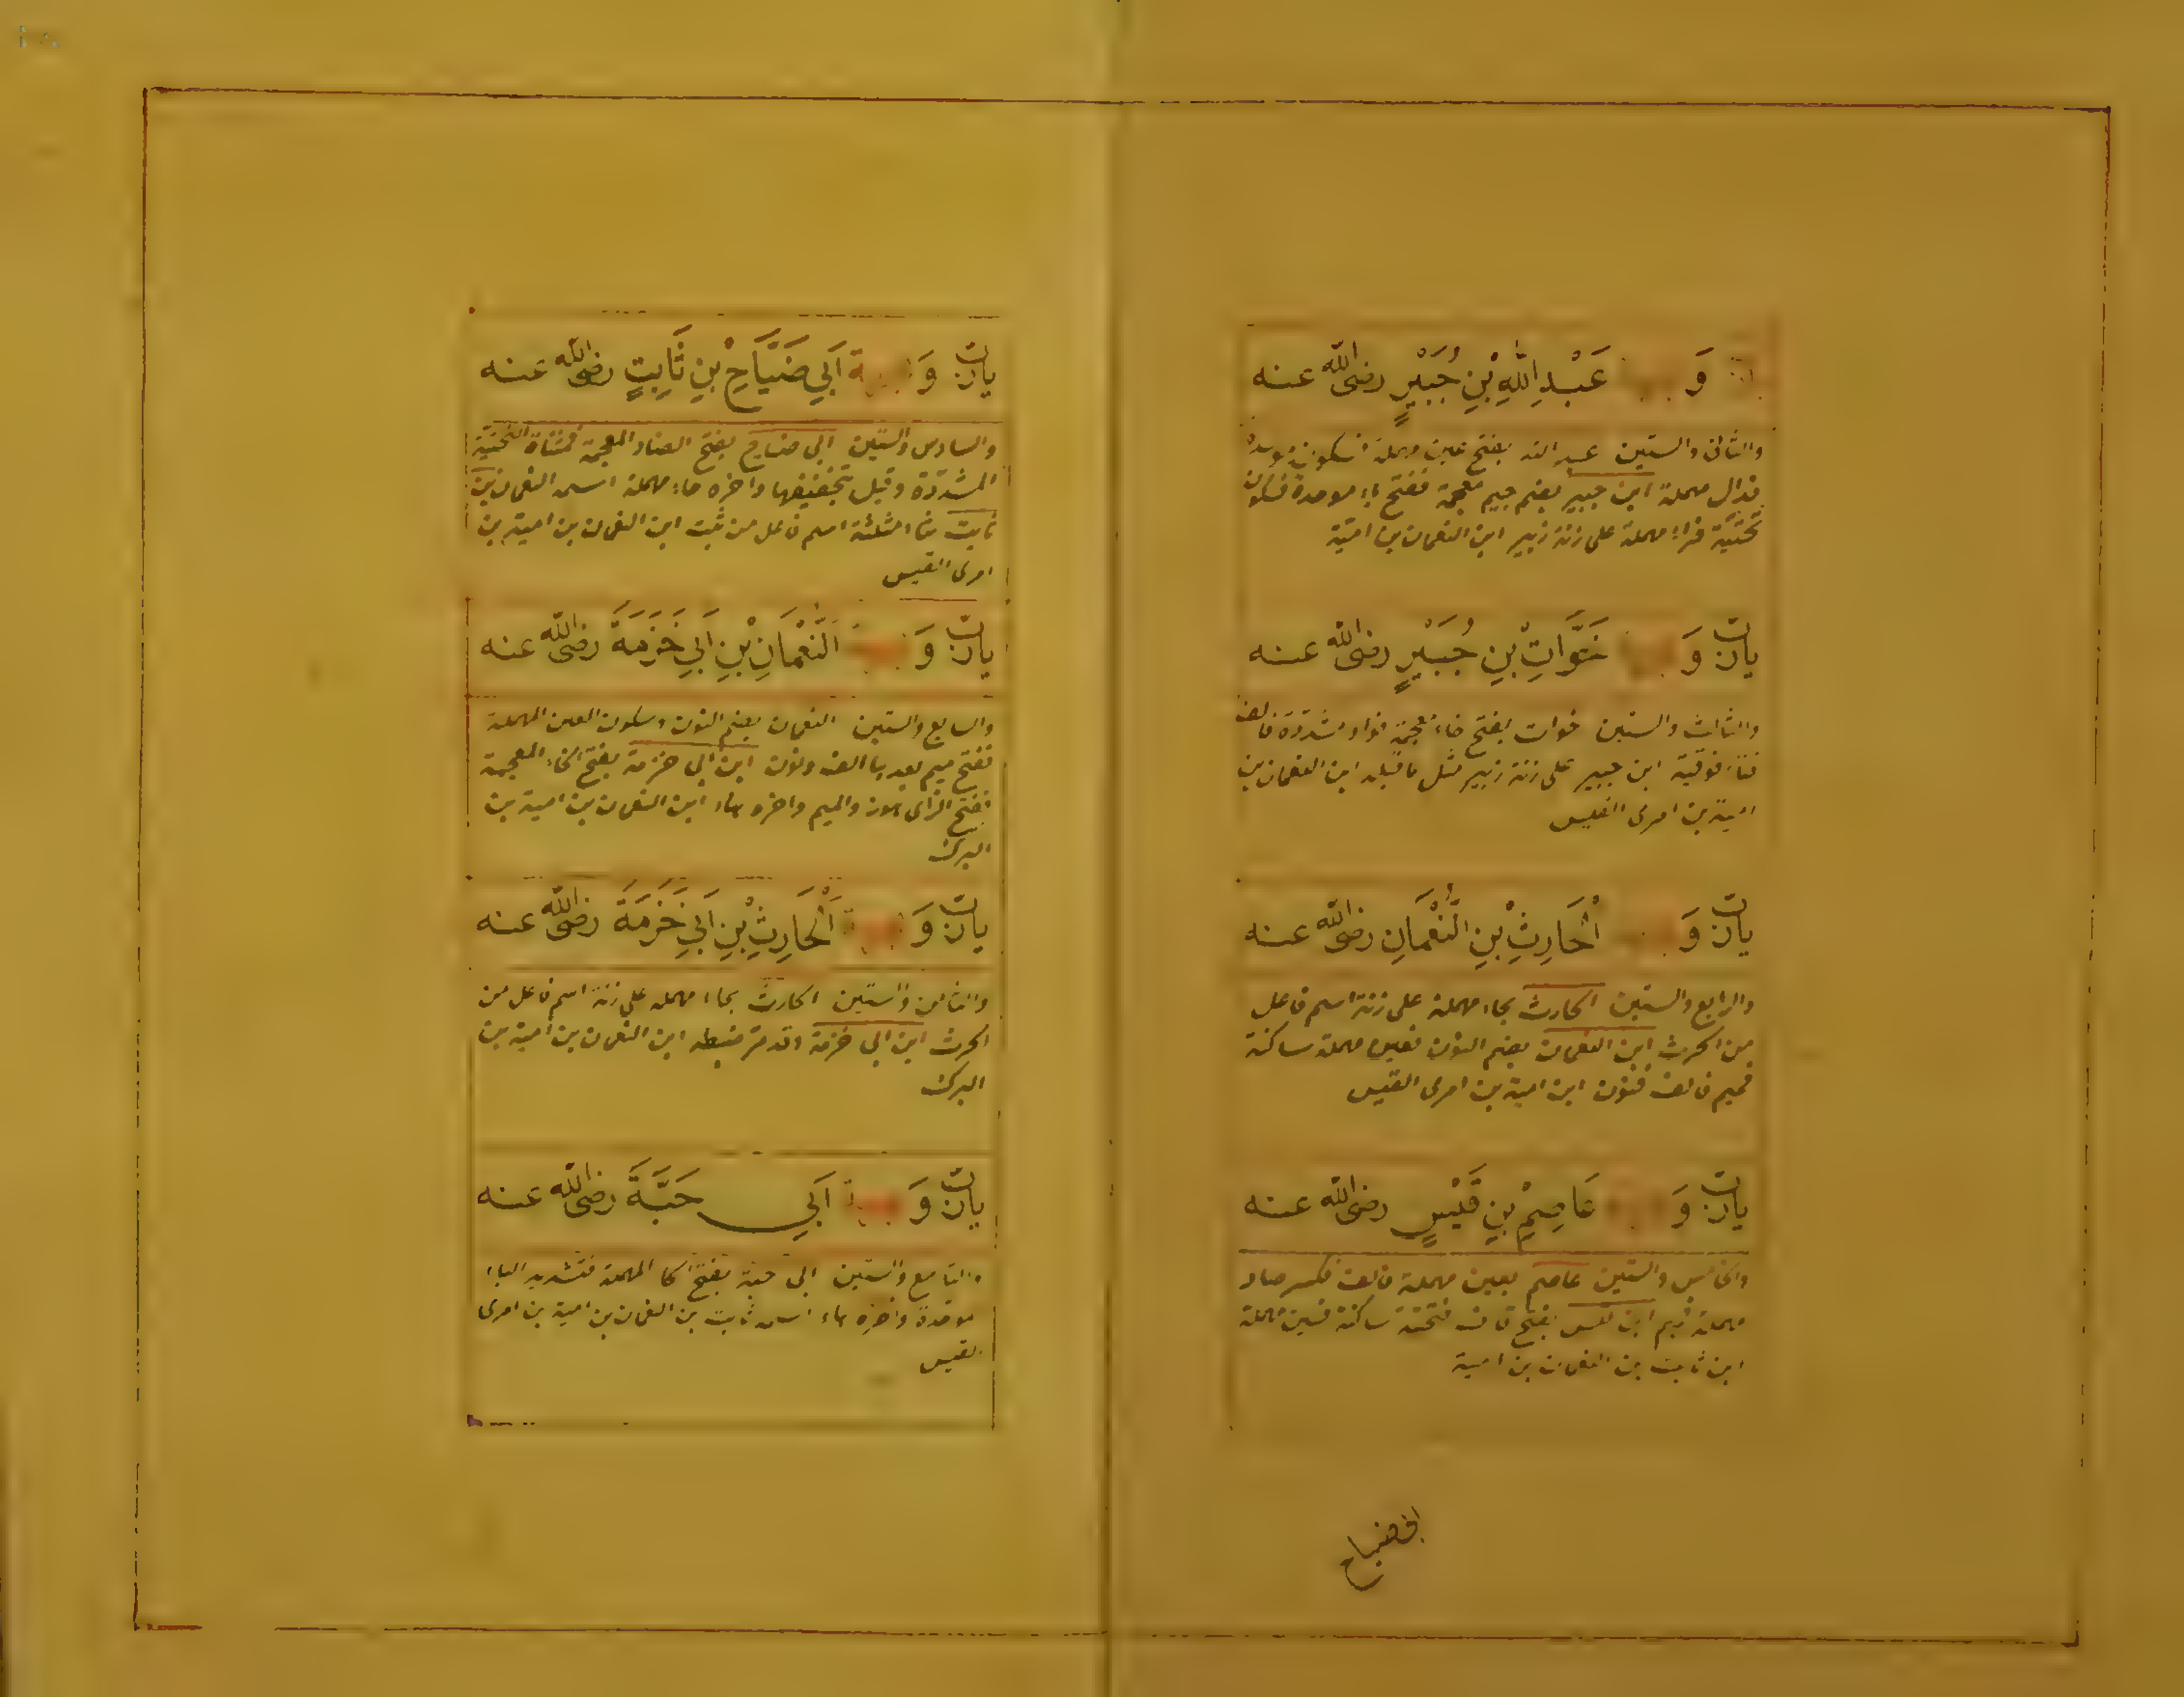 وَ عَبْدِ اللّٰهِ بْنِ جُبَيْرٍ رضى الله عنه
والثانى والستين عبد الله بفتح عين مهملة فسكون موحدة
فدال مهملة ابن جبير بضم جيم معجمة ففتح باء موحدة فسكون
تحتية فراء مهملة على زنة زبير ابن النعمان بن امية
يارب وَ خَوَّاتِ بْنِ جُبَيْرٍ رضى الله عنه
والثالث والستين خوات بفتح خاء معجمة فواو مشددة فالف
فتاء فوقية ابن جبير على زنة زبير مثل ما قبله ابن النعمان بن
امية بن امرى القيس
يارب وَ الْحَارِثِ بْنِ النُّعْمَانِ رضى الله عنه
والرابع والستين الحارث بحاء مهملة على زنة اسم فاعل
من الحرث ابن النعمان بضم النون فعين مهملة ساكنة
فميم فالف فنون ابن امية بن امرى القيس
يارب وَ عَاصِمِ بْنِ قَيْسٍ رضى الله عنه
والخامس والستين عاصم بعين مهملة فالف فكسر صاد
مهملة فميم ابن قيس بفتح قاف فتحتية ساكنة فسين مهملة
ابن ثابت بن النعمان بن امية
ابى ضياح
يارب وَ اَبِي ضَيَّاحِ بْنِ ثَابِتٍ رضى الله عنه
والسادس والستين ابى ضياح بفتح الضاد المعجمة فمثناة التحتية
المشددة وقيل بتخفيفها واخره حاء مهملة اسمه النعمان بن
ثابت بثاء مثلثة اسم فاعل من ثبت ابن النعمان بن امية بن
امرى القيس
يارب وَ النُّعْمَانِ بْنِ اَبِي خَزَمَةَ رضى الله عنه
والسابع والستين النعمان بضم النون وسكون العين المهملة
ففتح ميم بعدها الف ونون ابن ابى خزمة بفتح الخاء المعجمة
ففتح الزاى هوز والميم واخره هاء ابن النعمان بن امية بن
البرك
يارب وَ الْحَارِثِ بْنِ اَبِي خَزَمَةَ رضى الله عنه
والثامن والستين الحارث بحاء مهملة على زنة اسم فاعل من
الحرث ابن ابى خزمة وقد مر ضبطه ابن النعمان بن امية بن
البرك
يارب وَ اَبِي حَبَّةَ رضى الله عنه
والتاسع والستين ابى حبة بفتح الحا المهملة فتشديد الباء
موحدة واخره هاء اسمه ثابت بن النعمان بن امية بن امرى
القيس